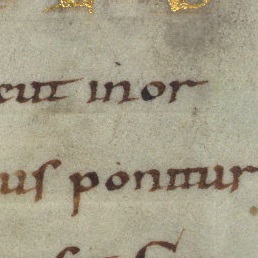 eut inor
us ponitur